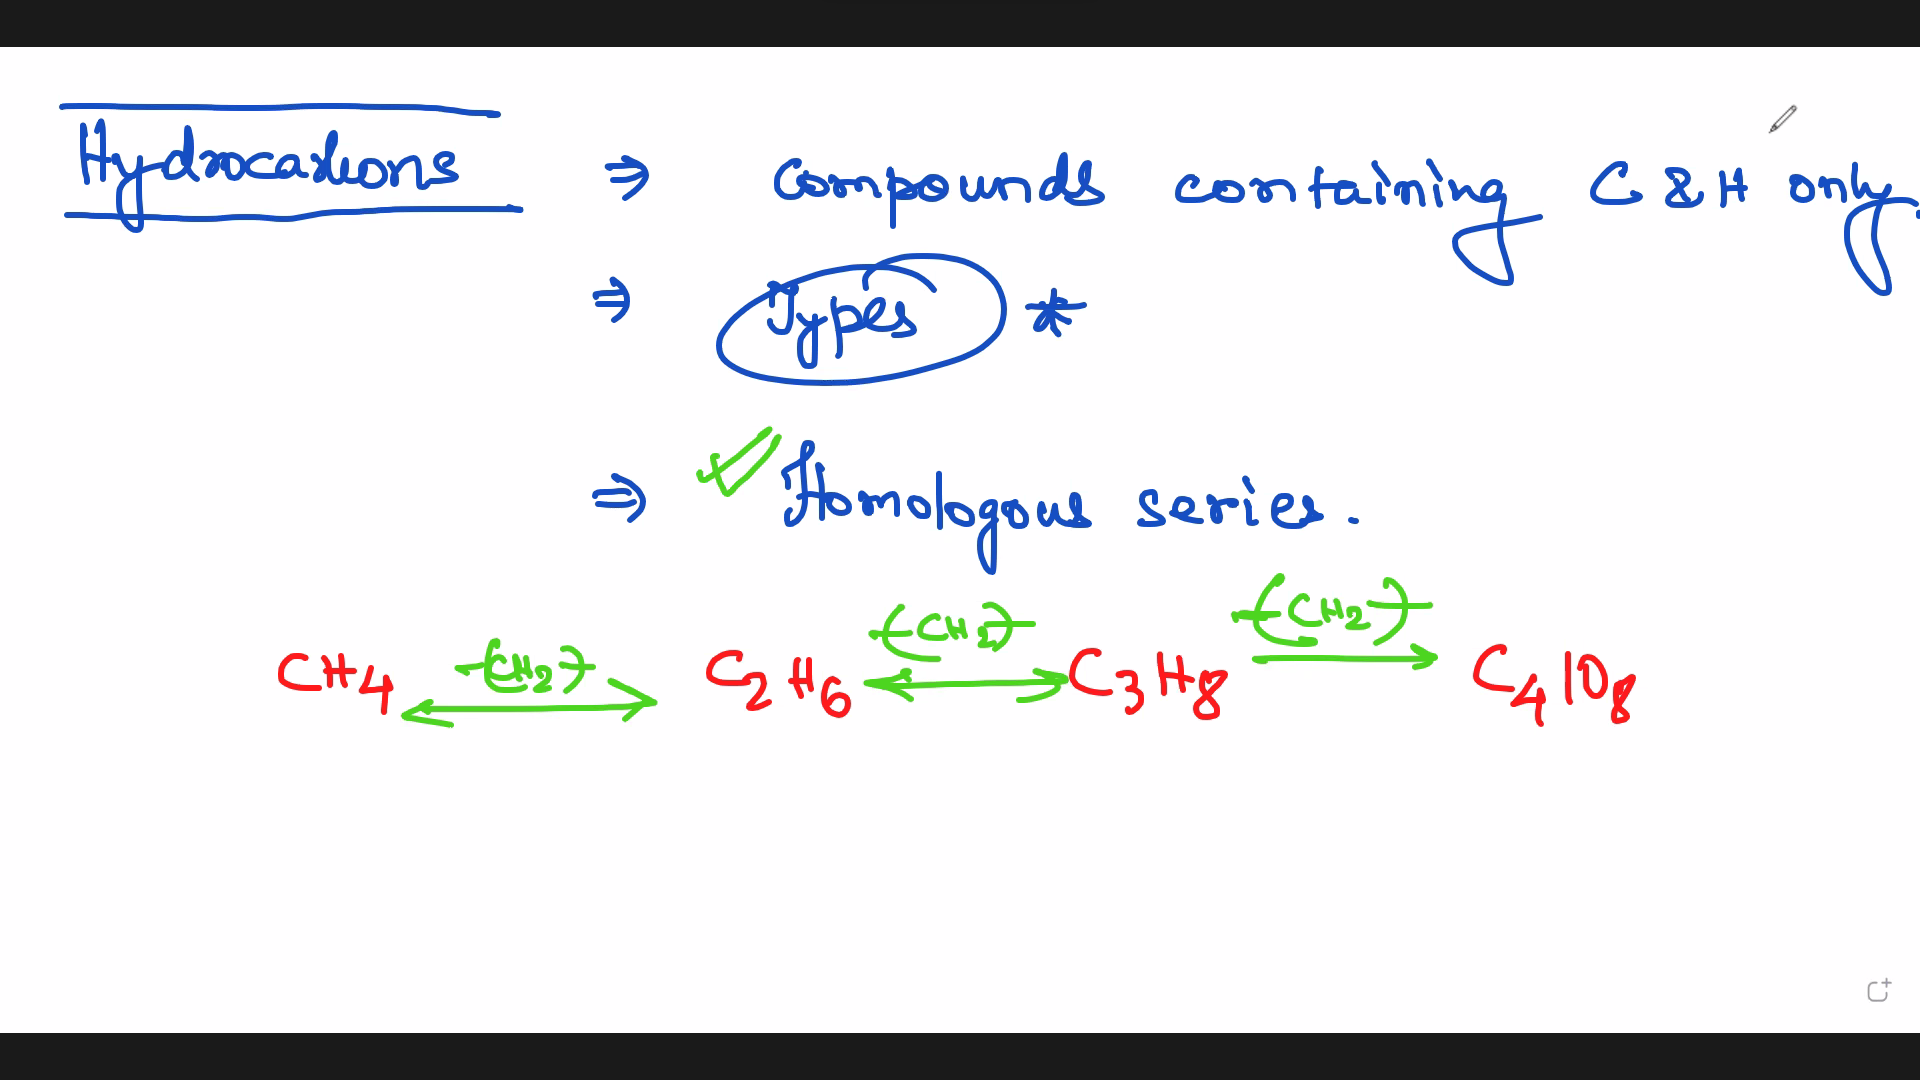 Hydrocarbons ⇒ Compounds containing C & H only.
⇒ Types *
⇒ ✓ Homologous series.
-(CH₂)- -(CH₂)- -(CH₂)-
CH₄ ↔ C₂H₆ ↔ C₃H₈ → C₄10₈